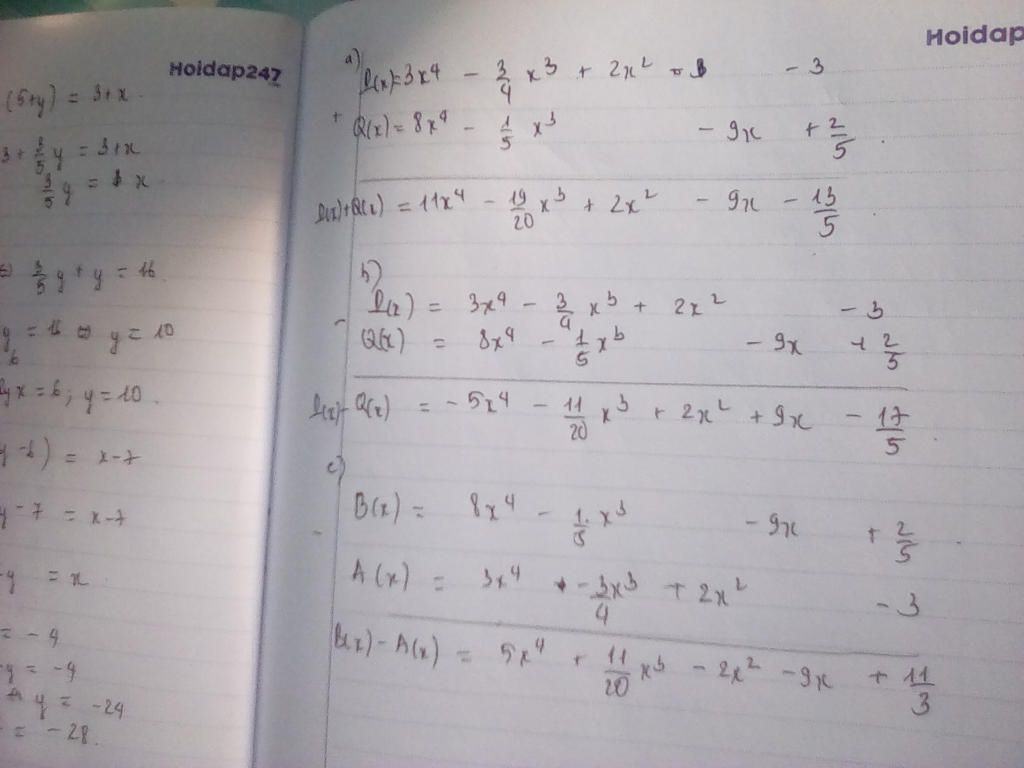 Hoidap247
(5+y) = 3+x.
3 + 3/5 y = 3+x
3/5 y = x.
3/5 y + y = 16
y = 16 ⇔ y = 10
x = 6; y = 10.
= x-7
y - 7 = x-7
y = x
= -4
y = -4
y = -24
= -28.
Hoidap
a) P(x) = 3x⁴ - 3/4 x³ + 2x² - 3
+ Q(x) = 8x⁴ - 1/5 x³ - 9x + 2/5
P(x)+Q(x) = 11x⁴ - 19/20 x³ + 2x² - 9x - 13/5
b)
- P(x) = 3x⁴ - 3/4 x³ + 2x² - 3
Q(x) = 8x⁴ - 1/5 x³ - 9x + 2/5
P(x) - Q(x) = -5x⁴ - 11/20 x³ + 2x² + 9x - 17/5
c)
- B(x) = 8x⁴ - 1/5 x³ - 9x + 2/5
A(x) = 3x⁴ - 3/4 x³ + 2x² - 3
B(x) - A(x) = 5x⁴ + 11/20 x³ - 2x² - 9x + 11/3